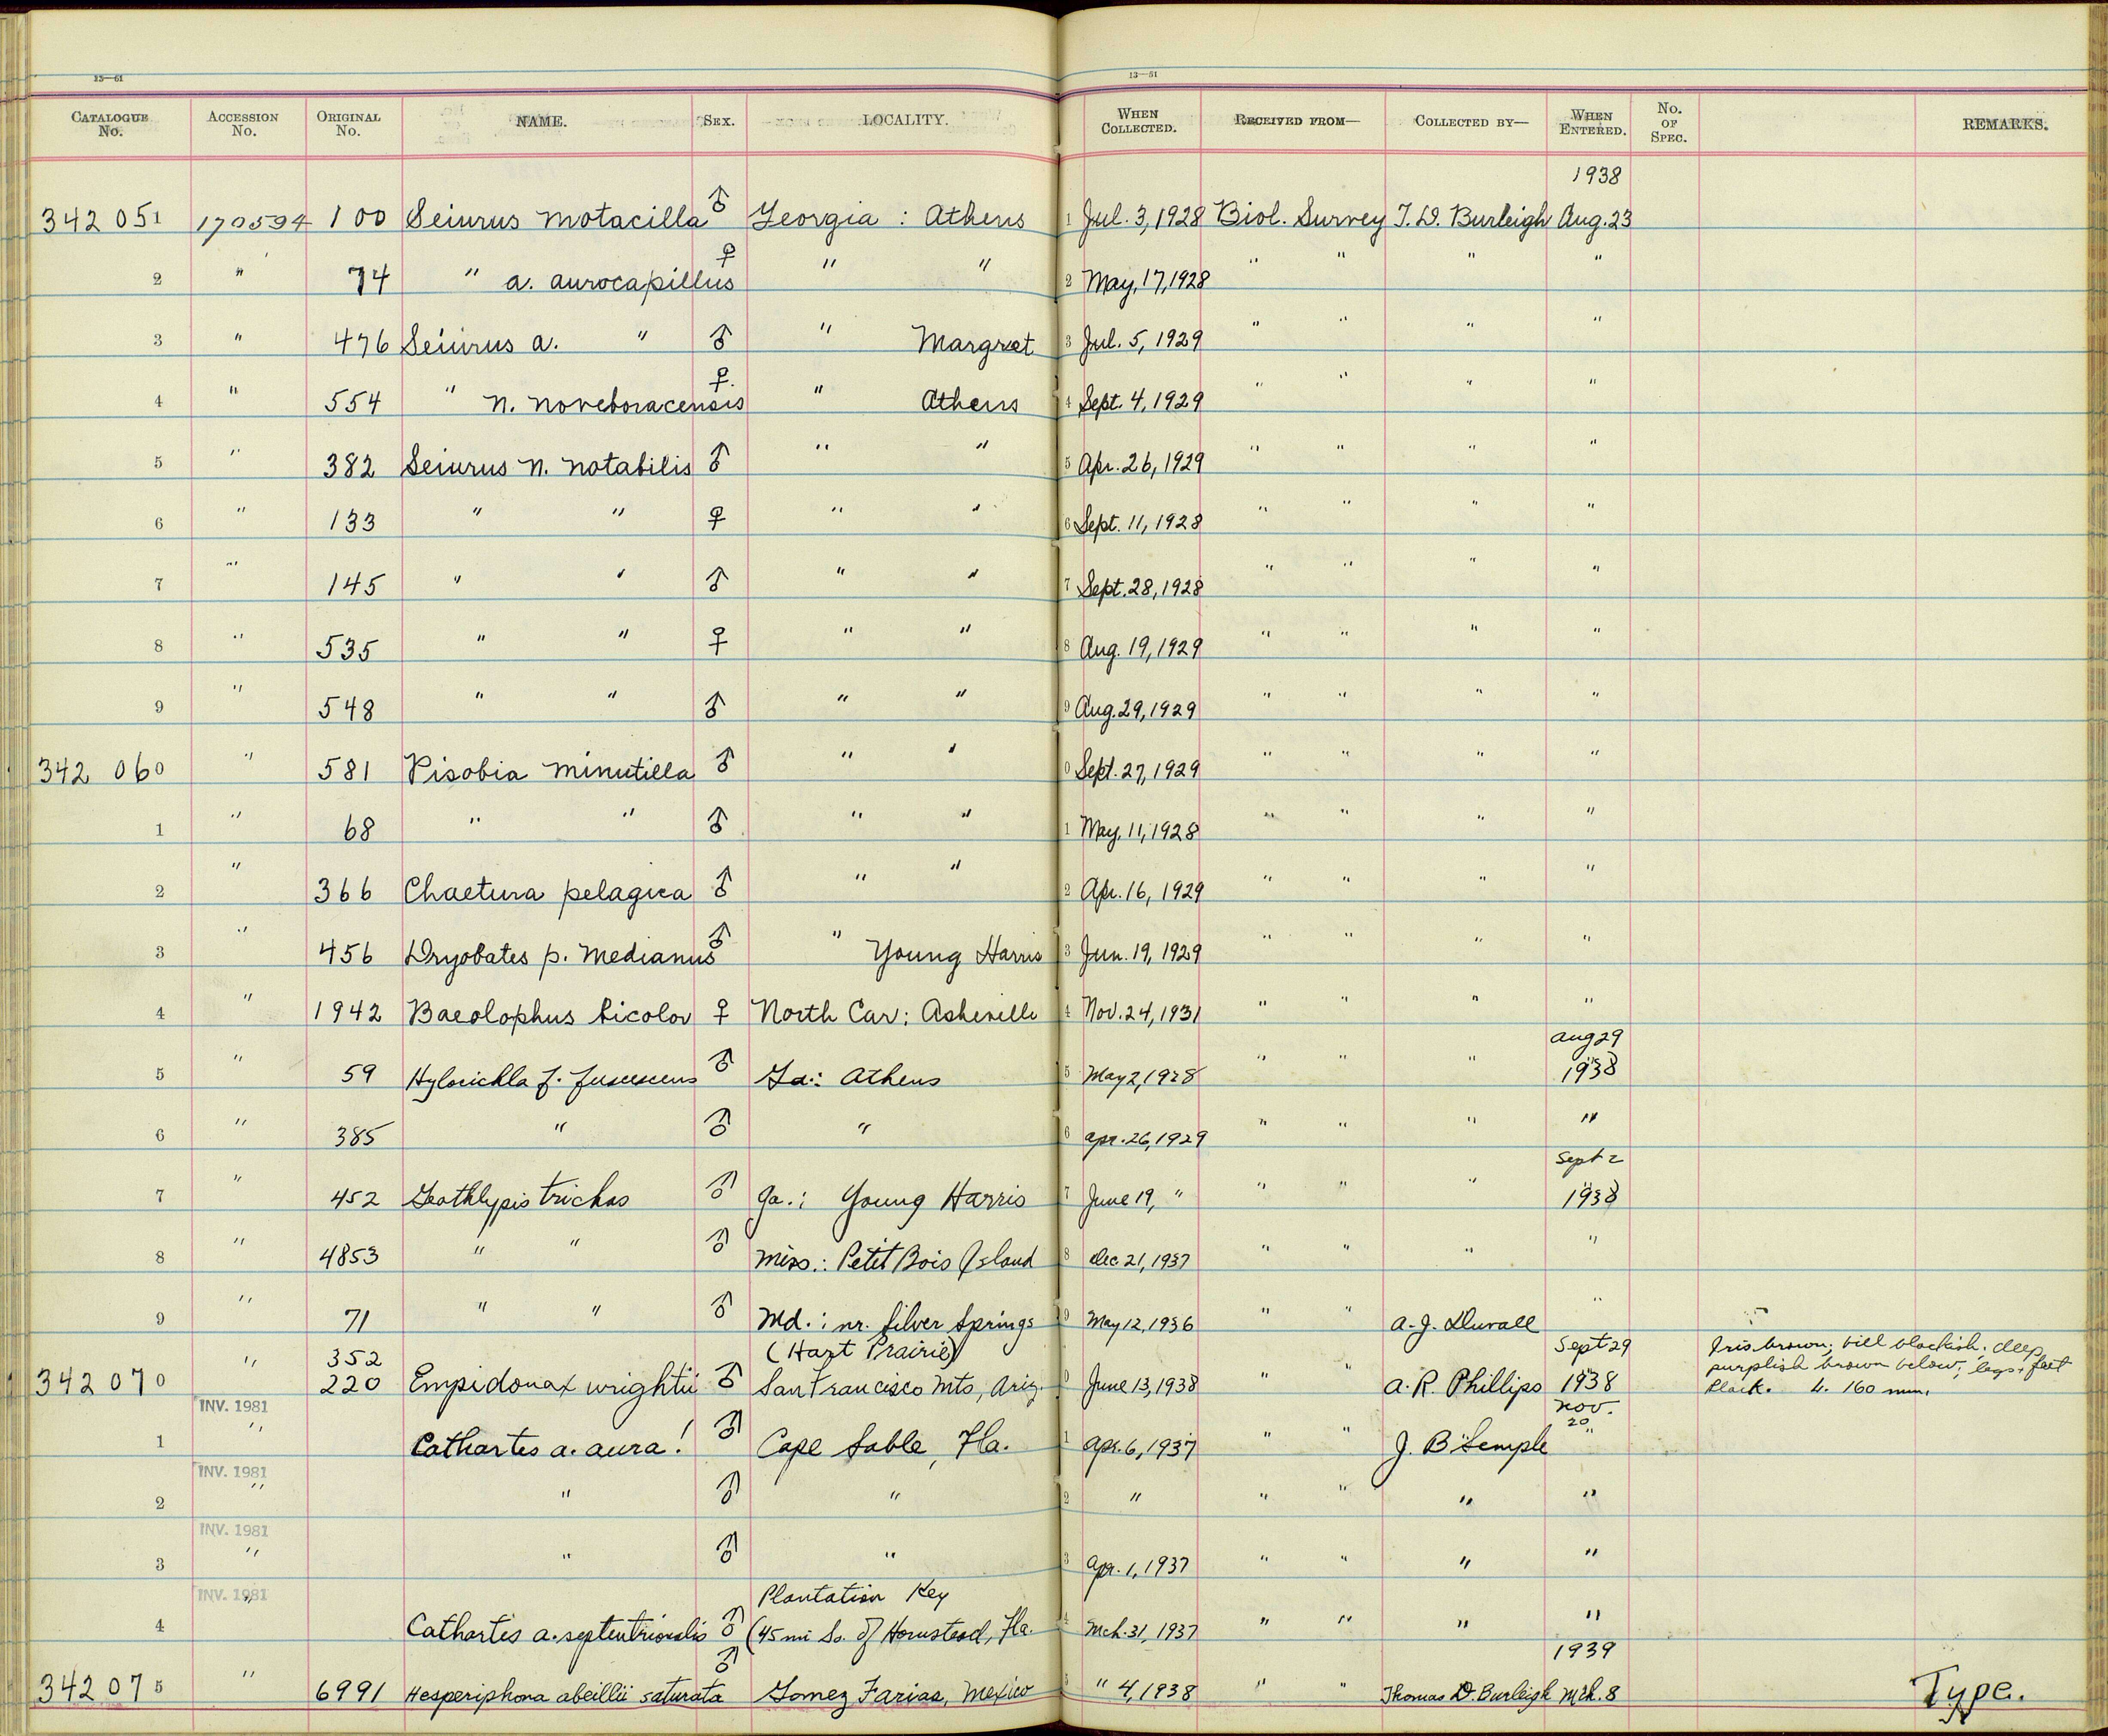 23—61
13—51
CATALOGUE No. ACCESSION No. ORIGINAL No. NAME. SEX. LOCALITY. WHEN COLLECTED. RECEIVED FROM— COLLECTED BY— WHEN ENTERED. No. OF SPEC. REMARKS.
1938
342 051 170594 100 Seiurus motacilla ♂ Georgia : Athens 1 Jul. 3, 1928 Biol. Survey T. D. Burleigh Aug. 23
2 " 74 " a. aurocapillus ♀ " " 2 May, 17, 1928 " " " "
3 " 476 Seiurus a. " ♂ " Margret 3 Jul. 5, 1929 " " " "
4 " 554 " n. noveboracensis ♀. " Athens 4 Sept. 4, 1929 " " " "
5 " 382 Seiurus n. notabilis ♂ " " 5 Apr. 26, 1929 " " " "
6 " 133 " " ♀ " " 6 Sept. 11, 1928 " " " "
7 " 145 " " ♂ " " 7 Sept. 28, 1928 " " " "
8 " 535 " " ♀ " " 8 Aug. 19, 1929 " " " "
9 " 548 " " ♂ " " 9 Aug. 29, 1929 " " " "
342 060 " 581 Pisobia minutilla ♂ " " 0 Sept. 27, 1929 " " " "
1 " 68 " " ♂ " " 1 May, 11, 1928 " " " "
2 " 366 Chaetura pelagica ♂ " " 2 Apr. 16, 1929 " " " "
3 " 456 Dryobates p. medianus ♂ " Young Harris 3 Jun. 19, 1929 " " " "
4 " 1942 Baeolophus bicolor ♀ North Car: Asheville 4 Nov. 24, 1931 " " " "
Aug 29
5 " 59 Hylocichla f. fuscescens ♂ Ga: Athens 5 May 2, 1928 " " " 1938
6 " 385 " ♂ " 6 Apr. 26, 1929 " " " "
Sept 2
7 " 452 Geothlypis trichas ♂ Ga.: Young Harris 7 June 19, " " " " 1938
8 " 4853 " " ♂ Miss.: Petit Bois Island 8 Dec 21, 1937 " " " "
9 " 71 " " ♂ Md.: nr. Silver Springs 9 May 12, 1936 " " A. J. Duvall "
352 (Hart Prairie) Sept 29 Iris brown; bill blackish, deep
purplish brown below; legs & feet
342 070 " 220 Empidonax wrightii ♂ San Francisco Mts, Ariz. 0 June 13, 1938 " " A. R. Phillips 1938 black. L. 160 mm.
INV. 1981 Nov. 20
1 " Cathartes a. aura! ♂ Cape Sable, Fla. 1 Apr. 6, 1937 " " J. B Semple "
INV. 1981
2 " " ♂ " 2 " " " " "
INV. 1981
3 " " ♂ " 3 Apr. 1, 1937 " " " "
INV. 1981 Plantation Key
4 " Cathartes a. septentrionalis ♂ (45 mi So. of Homstead, Fla. 4 Mch. 31, 1937 " " " "
1939
342 075 " 6991 Hesperiphona abeillii saturata ♂ Gomez Farias, Mexico 5 " 4, 1938 " " Thomas D. Burleigh Mch. 8 Type.